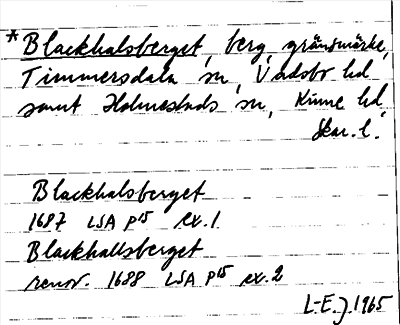 *Blackhalsberget, berg, gränsmärke,
Timmersdala sn, Vadsbo hd
samt Holmestads sn, Kinne hd,
Skar. l.
Blackhalsberget
1687 LSA P15 ex. 1
Blackhallsberget
renov. 1688 LSA P15 ex. 2
L-E. J. 1965